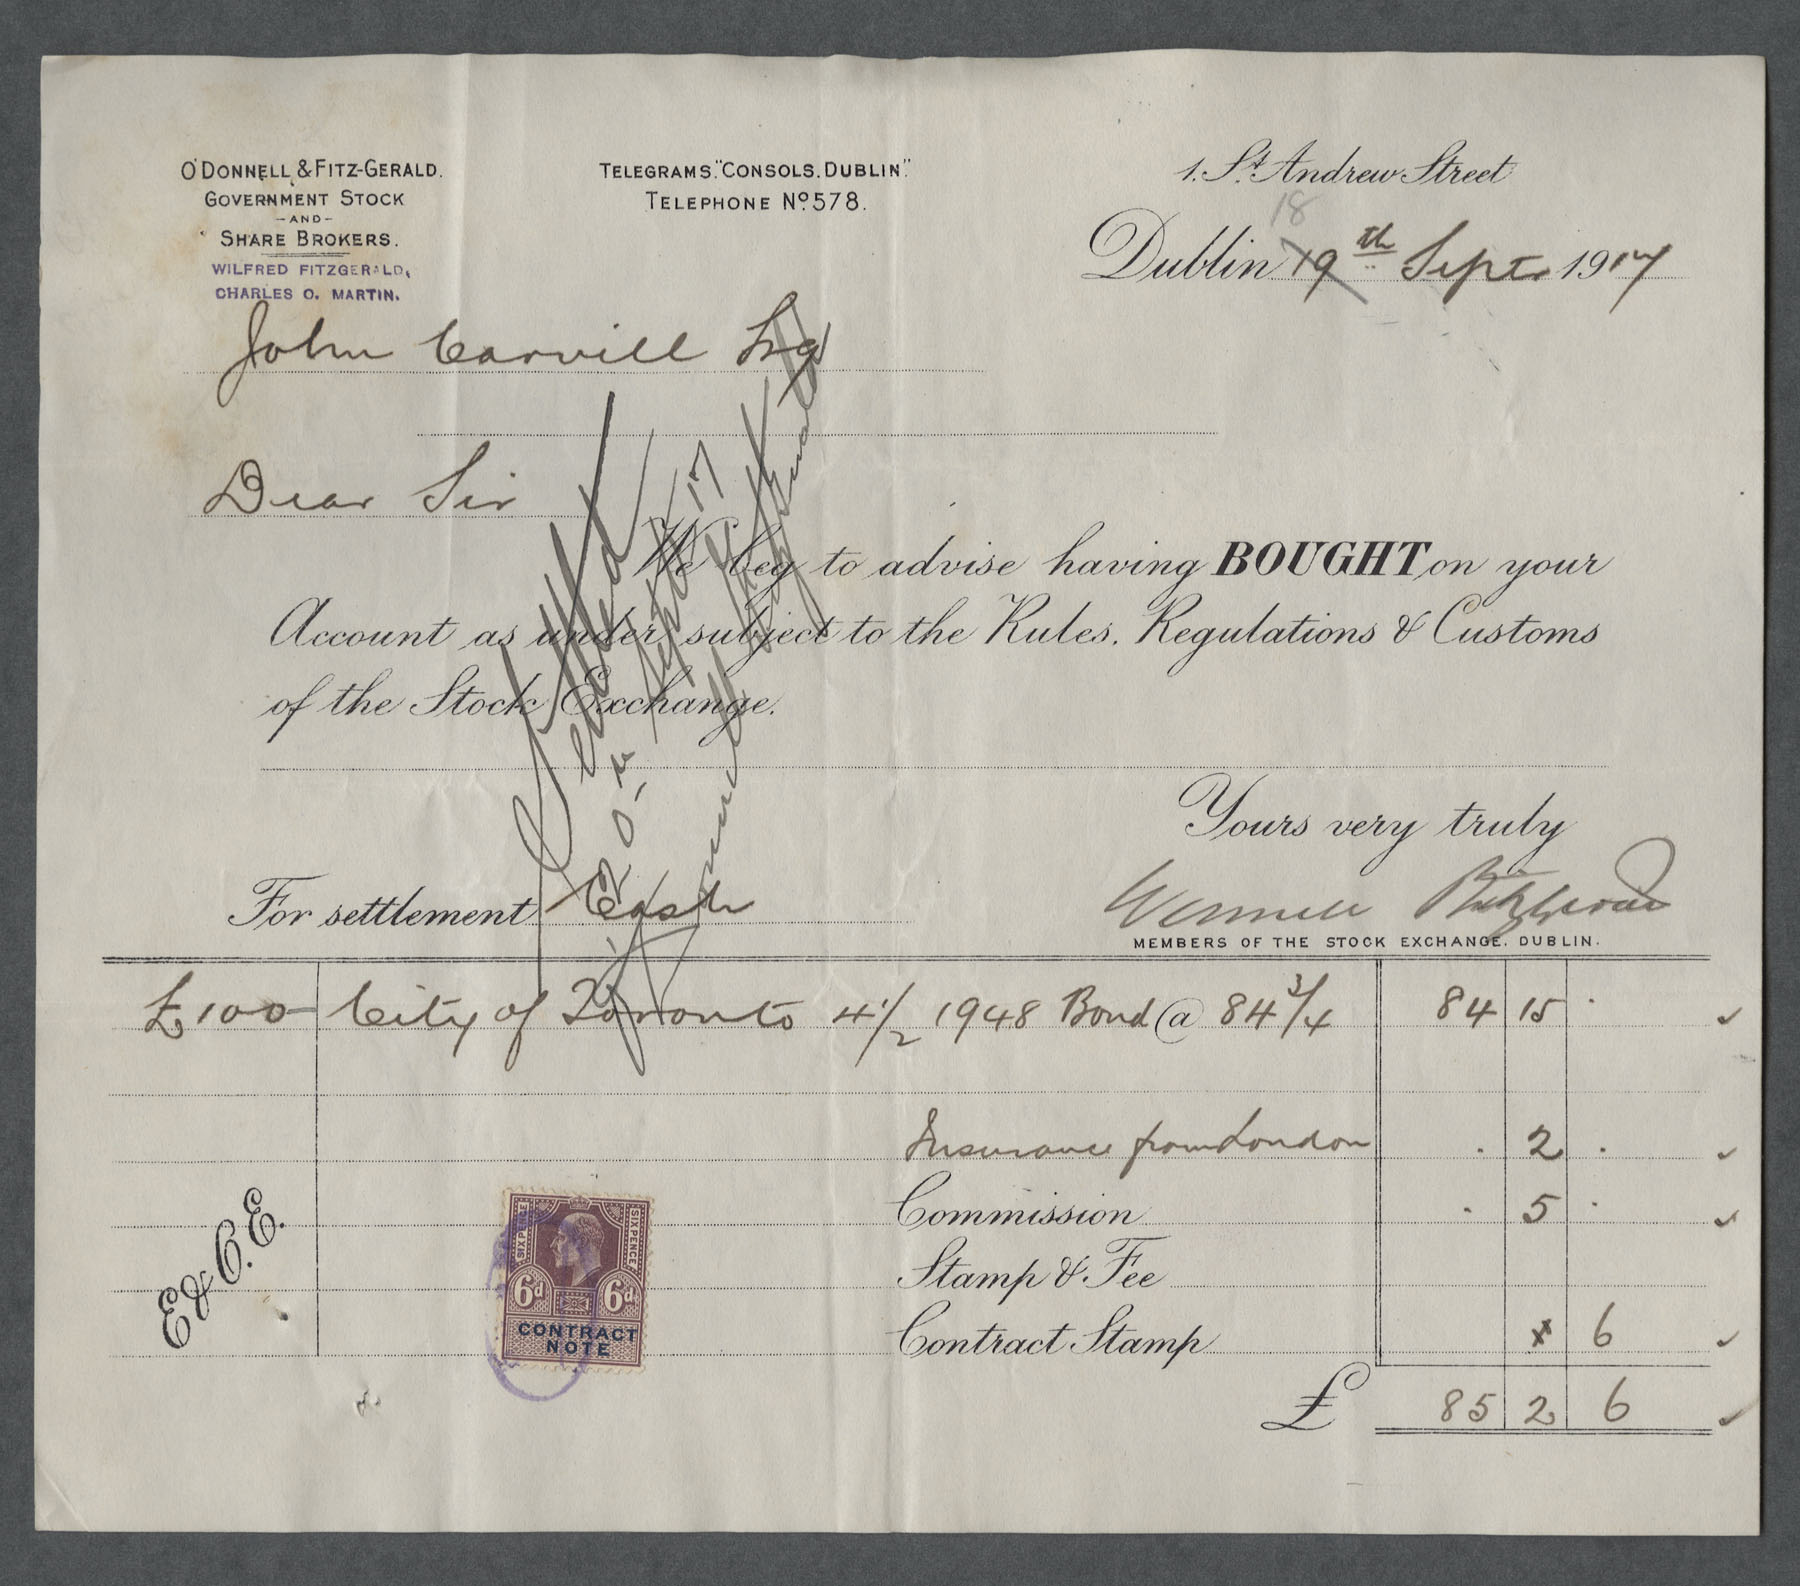 O'DONNELL & FITZ-GERALD.
GOVERNMENT STOCK
-AND-
SHARE BROKERS.
WILFRED FITZGERALD,
CHARLES O. MARTIN.
TELEGRAMS. "CONSOLS. DUBLIN".
TELEPHONE No. 578.
1. St. Andrew Street
18
Dublin 19th Sept 1917
John Carvill Esq
Dear Sir
We beg to advise having BOUGHT on your
Account as under, subject to the Rules, Regulations & Customs
of the Stock Exchange.
Yours very truly
MEMBERS OF THE STOCK EXCHANGE, DUBLIN.
For settlement Cash
Settled
20 Sept 17
£100 City of Toronto 4 1/2 1948 Bond @ 84 3/4 84 15 .
Insurance from London . 2 .
Commission . 5 .
Stamp & Fee
Contract Stamp 6
£ 85 2 6
E & O. E.
SIXPENCE SIXPENCE
6d 6d
CONTRACT
NOTE